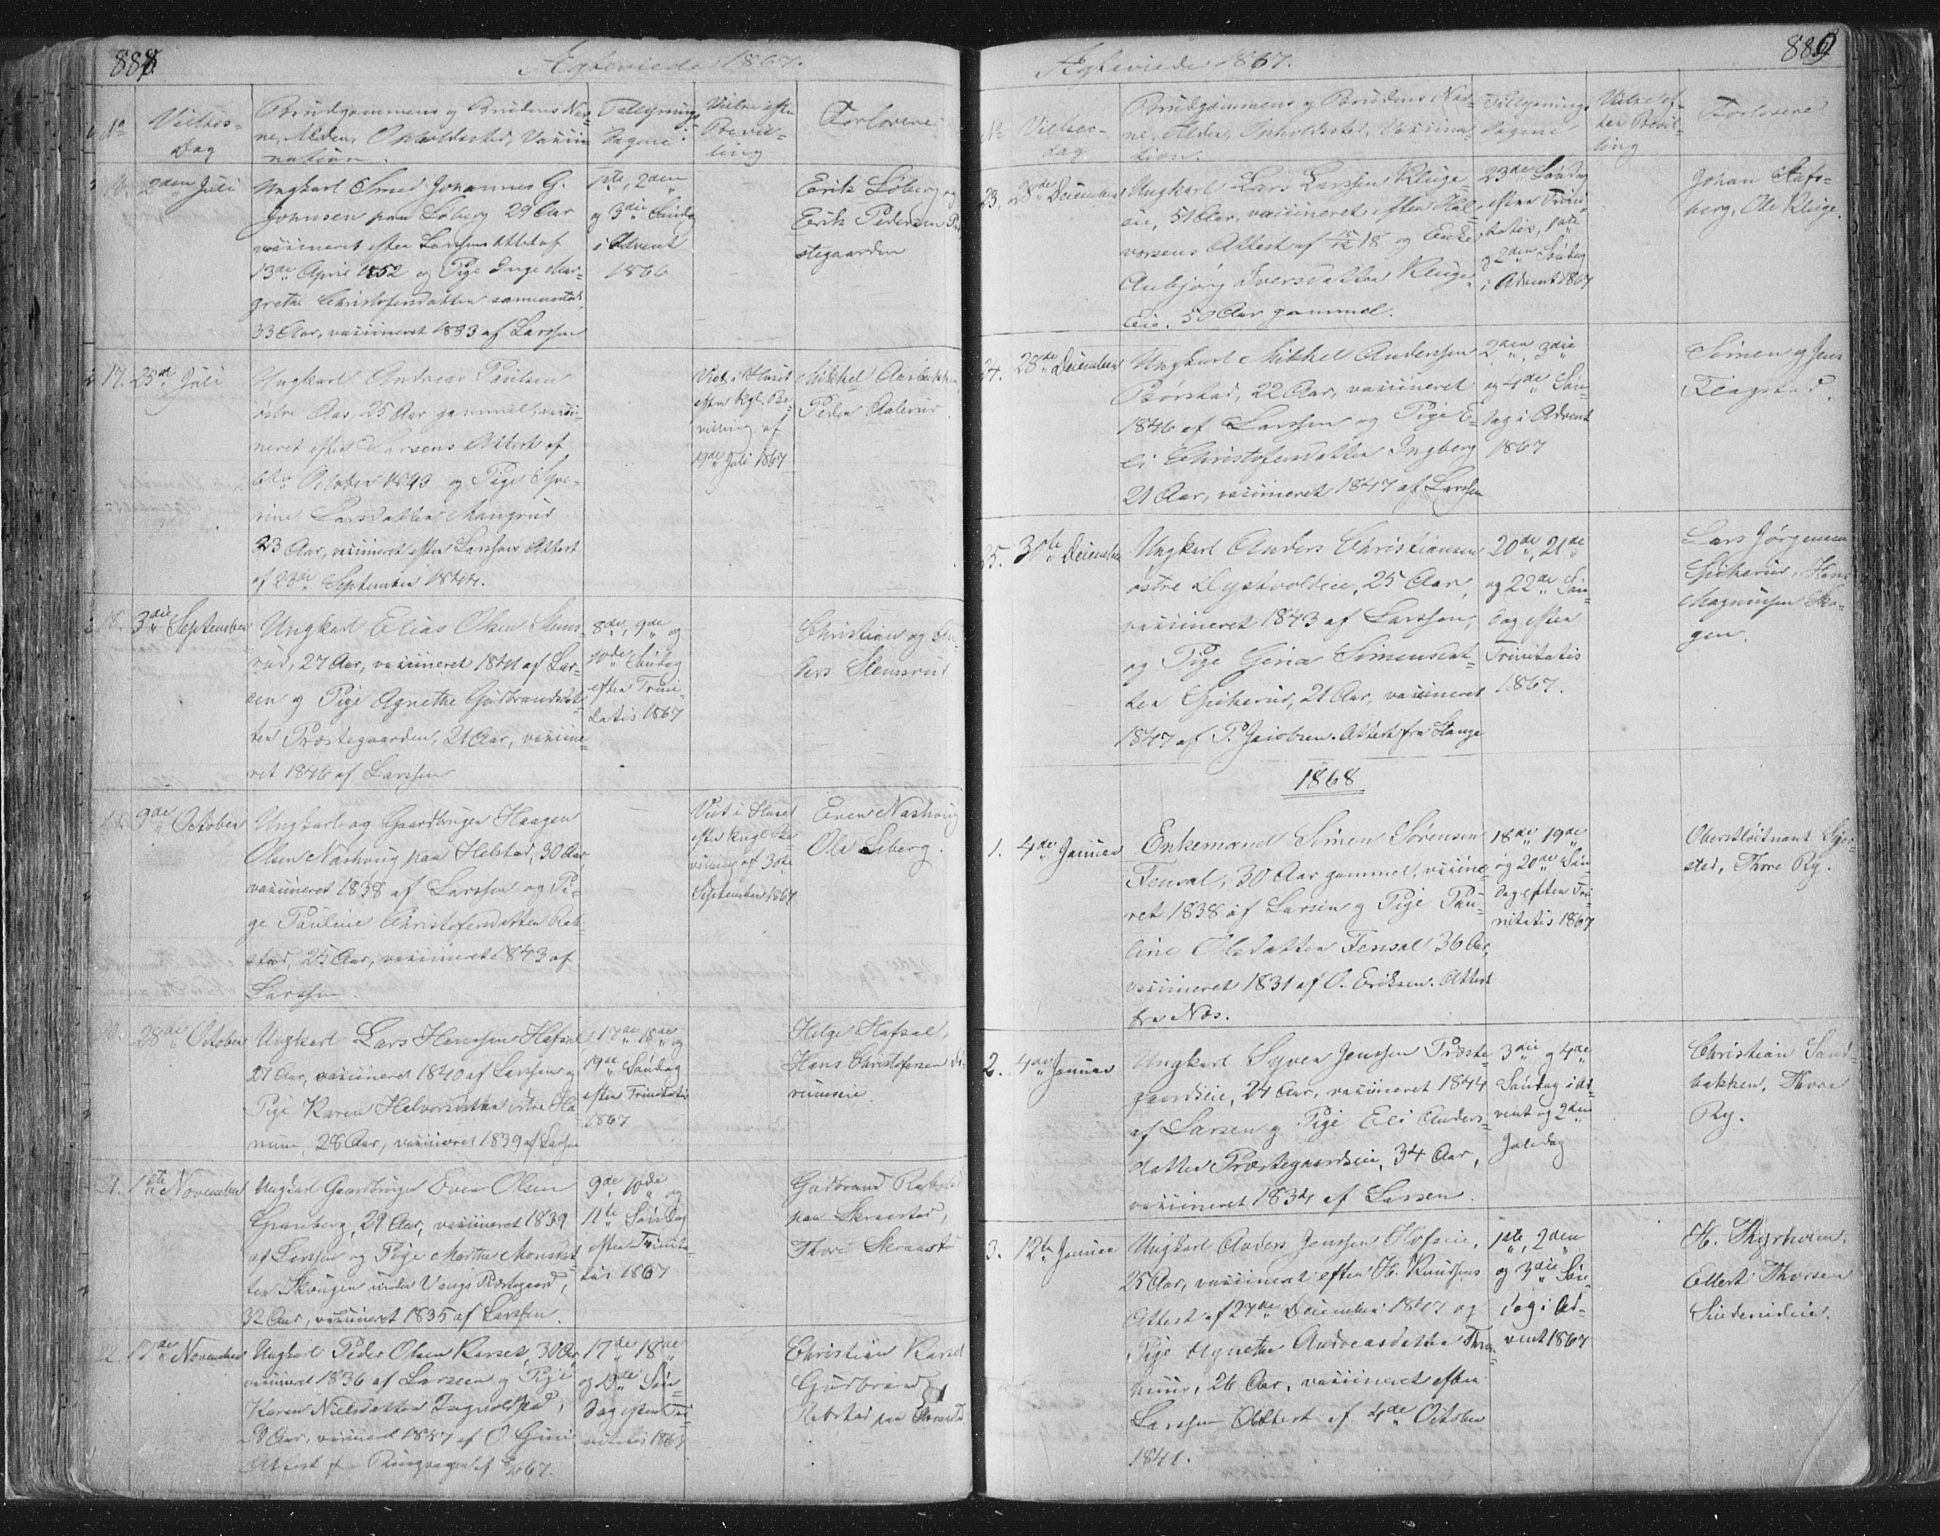 888
Ægteviede 1867.
No
Vielses-
Dag
Brudgommens og Brudens Nav-
ne, Alder, Opholdssted, Vaccin
nation.
Tillysnings
Dagene
Vielse efter
Bevil-
ling
Forlovere
2den Juli
Ungkarl Smed Johannes G.
Johnsen paa Løberg 29 Aar
vaccineret efter Larsens Attest af
13de April 1852 og Pige Inge Mar-
grethe Christofersdatter sammesteds
33 Aar, vaccineret 1833 af Larssen
1ste, 2den
og 3die Søndag
i Advent
1866
Erik Løberg og
Erik Pedersen Præ
stegaarden
17.
25de Juli
Ungkarl Andreas Paulsen
østre Aas, 25 Aar gammel vacci-
neret efter Larsens Attest af
October 1843 og Pige Seve-
rine Larsdatter Mangrud
23 Aar, vaccineret efter Larssens Attest
af 23de September 1844.
Viet i Huset
efter Kgl. Be-
villing af
19de Juli 1867
Mikkel Aasbakken
Peder Aalerud.
18.
3die September
Ungkarl Elias Olsen Stens-
rud, 27 Aar, vaccineret 1841 af Lar-
sen og Pige Agnethe Gudbrandsdat-
ter Præstegaarden, 21 Aar, vaccine-
ret 1846 af Larssen
8de, 9de og
10de Søndag
efter Trini-
tatis 1867
Christian og An-
ders Stensrud
9de October
Ungkarl og Gaardbruger Haagen
Olsen Nashoug paa Helstad, 30 Aar
vaccineret 1838 af Larssen og Pi-
ge Pauline Christofersdatter Rab-
stad, 25 Aar, vaccineret 1843 af
Larssen.
Viet i Huset
efter Kngl. Be-
villing af 30te
September 1867
Even Nashoug
Ole Liberg.
20.
28de October
Ungkarl Lars Hanssen Hafsal
27 Aar, vaccineret 1840 af Larssen og
Pige Karen Halvorsdatter østre Ha
num, 28 Aar, vaccineret 1839 af Larssen
17de 18de og
19de Søndag
efter Trinitatis
1867
Helge Hafsal,
Hans Christofersen
1ste November
Ungkarl Gaardbruger Even Olsen
Granberg, 29 Aar, vaccineret 1839
af Larssen og Pige Marthe Monsdat
ter Skougen under Vangs Præstegaard,
32 Aar, vaccineret 1835 af Larssen.
9de 10de og
11te Søndag
efter Trinita-
tis 1867
Gudbrand Rabstad
paa Skraastad,
Thore Skraastad
22.
17de November
Ungkarl Peder Olsen Karset, 30 Aar
vaccineret 1836 af Larssen og Pige
Karen Nielsdatter
20 Aar, vaccineret 1847 af O
Attest fr Ringsager
17de 18de
og 19de Søn-
dag efter Tri-
nitatis 1867
Christian Karset
Gudbrand
Rabstad paa Skraastad
889
Ægteviede 1867.
No
Vielses-
dag
Brudgommens og Brudens Nav-
ne, Alder, Opholdssted, Vaccina-
tion.
Tillysnings
dagene
Vielse ef-
ter Bevil-
ling
Forlovere
23.
28de December
Ungkarl Lars Larssen Kluge-
eie, 51 Aar, vaccineret efter Hal-
vorsens Attest af 15/12 18 og Enke
Anbjørg Iversdatter Kluge-
Eie, 50 Aar gammel.
23de Søndag
efter Trini-
tatis, 1ste
og 2den Søndag
i Advent 1867
Johan Stafs-
berg, Ole Kluge.
24.
28de December
Ungkarl Mikkel Anderssen
Børstad, 22 Aar, vaccineret
1846 af Larssen og Pige E-
li Christofersdatter Ingberg
21 Aar, vaccineret 1847 af Larssen
2den, 3die
og 4de Søn-
dag i Advent
1867
Simen og Jens
Flagstad.
25.
30te December
Ungkarl Anders Christiansen
østre Dystvoldeie, 25 Aar,
vaccineret 1843 af Larssen,
og Pige Gina Simensdat-
ter Spikerud, 21 Aar, vaccineret
1847 af P. Jacobsen. Attest fra Stange
20de, 21de
og 22de Søn-
dag efter
Trinitatis
1867.
Lars Jørgensen
Spikerud, Hans
Magnusen Ska-
gen.
1868
1.
4de Januar
Enkemand Simen Sørensen
Fensal, 30 Aar gammel, vaccine-
ret 1838 af Larsen og Pige Pau-
line Olsdatter Fensal 36 Aar,
vaccineret 1831 af O. Eriksen. Attest
fra Næs.
18de 19de
og 20de Søn-
dag efter Tri-
nitatis 1867
Oberstløitnant Sejer-
sted, Thore Ry.
2.
4de Januar
Ungkarl Syver Jenssen Præste-
gaardseie, 24 Aar, vaccineret 1844
af Larsen og Pige Eli Anders-
datter Præstegaardseie, 34 Aar,
vaccineret 1834 af Larsen.
3die og 4de
Søndag i Ad
vent og 2den
Juledag
Christian Sand-
bakken, Thore
Ry.
3.
12te Januar
Ungkarl Anders Jenssen Hofseie,
25 Aar, vaccineret efter H. Knudsens
Attest af 27de December 1847 og
Pige Agnethe Andreasdatter Thro-
nuus, 26 Aar, vaccineret efter
Larssen Attest af 4de October
1841.
1ste, 2den
og 3die Søn-
dag i Ad-
vent 1867
H. Thyrholm,
Ellert Thorsen